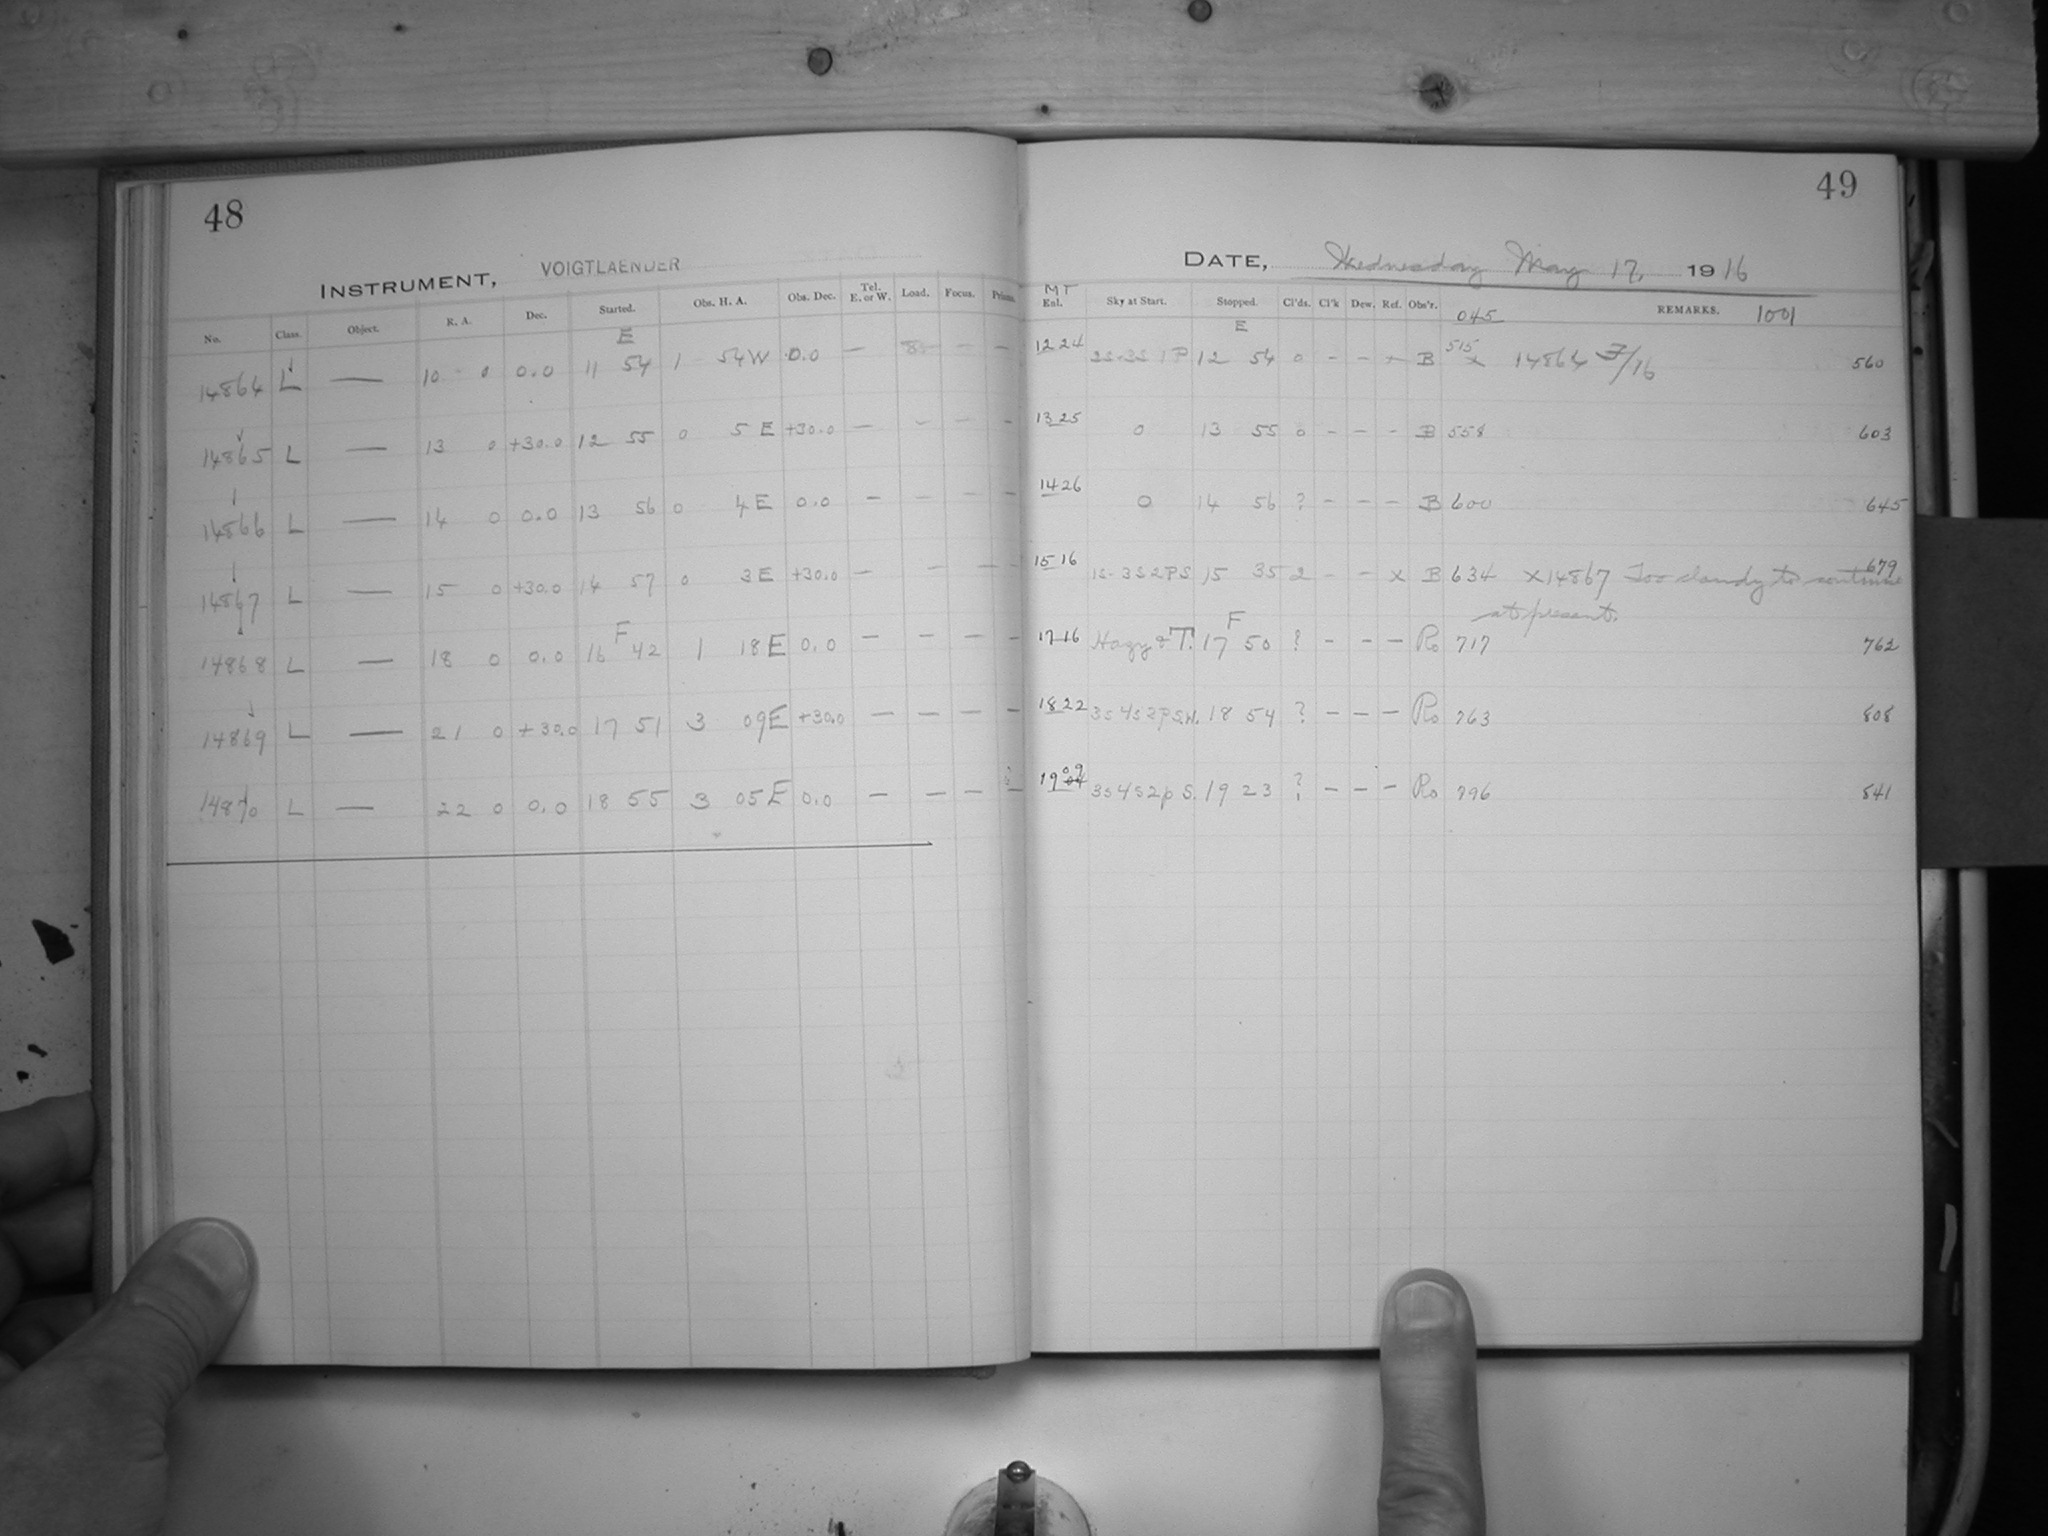 48
INSTRUMENT, VOIGTLAENDER
No. Class. Object. R. A. Dec. Started. Obs. H. A. Obs. Dec. Tel. E. or W. Load. Focus. Prisms.
E
14864 L — 10 0 0.0 11 54 1 54W 0.0 — — —
14865 L — 13 0 +30.0 12 55 0 5 E +30.0 — - - -
14866 L — 14 0 0.0 13 56 0 4 E 0.0 — - - -
14867 L — 15 0 +30.0 14 57 0 3 E +30.0 — - - -
14868 L — 18 0 0.0 16 F 42 1 18 E 0.0 — — — —
14869 L — 21 0 +30.0 17 51 3 09E +30.0 — — — —
14870 L — 22 0 0.0 18 55 3 05 E 0.0 — — — —
49
DATE, Wednesday May 17, 1916
MT
Enl. Sky at Start. Stopped. Cl'ds. Cl'k Dew. Ref. Obs'r. 045 REMARKS. 1001
E
12 24 12 54 0 - - - B 515 x 14864 3/16 560
13 25 0 13 55 0 - - - B 558 603
14 26 0 14 56 ? - - - B 600 645
15 16 1S-3S2PS 15 35 2 - - x B 634 x14867 Too cloudy to continue 679
at present.
17 16 Hazy & T. 17 F 50 ? - - - Ro 717 762
18 22 3s4s2pS.W. 18 54 ? - - - Ro 763 808
19 09 3s4s2p S. 19 23 ? - - - Ro 796 841